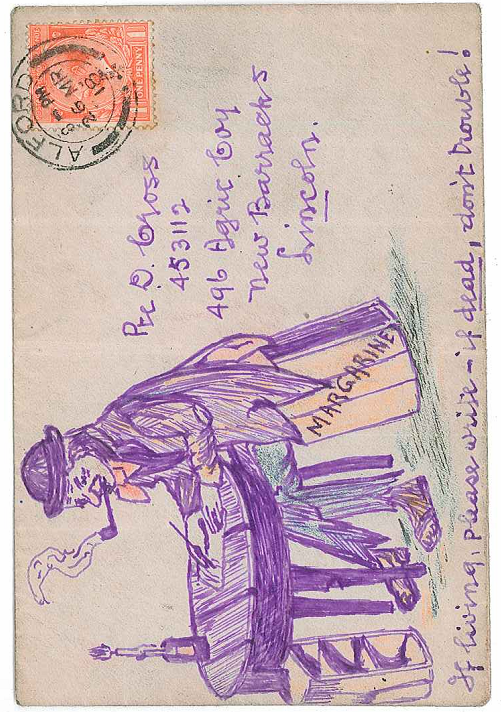 ONE PENNY
ALFORD
PM
26 MR
18
Pte D. Cross
453112
496 Agric Coy
New Barracks
Lincoln.
MARGARINE
If living, please write - if dead, don't trouble!